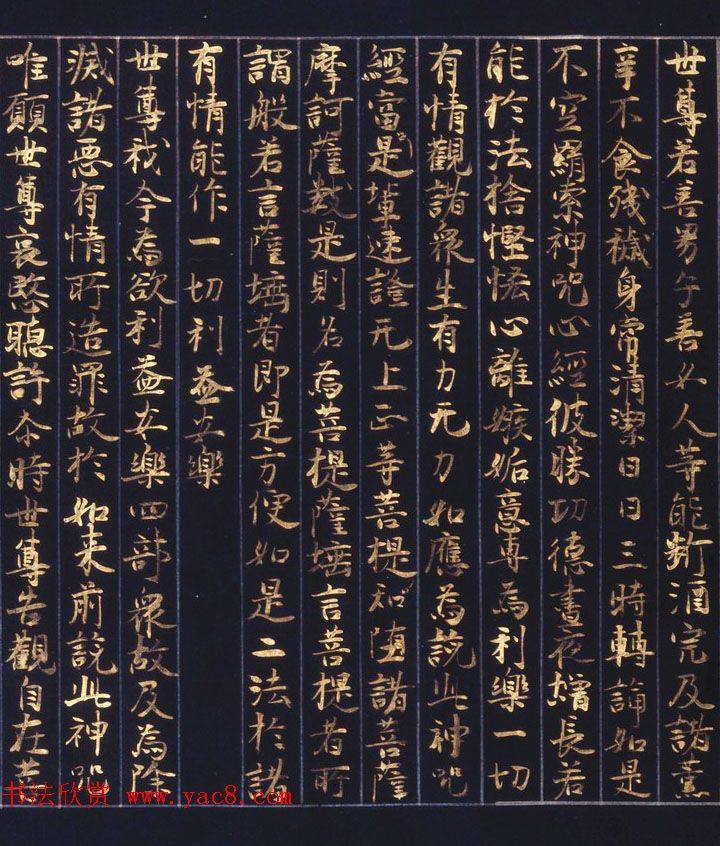 世尊若善男子善女人等能斷酒完及諸薰
辛不食殘穢身常清潔日日三時轉論如是
不空羂索神咒心經彼勝功德晝夜增長若
能於法捨慳悋心離嫉妬意專為利樂一切
有情觀諸眾生有力无力如應為說此神咒
經當是輩速證无上正等菩提知隨諸菩薩
摩訶薩數是則名為菩提薩埵言菩提者所
謂般若言薩埵者即是方便如是二法於諸
有情能作一切利益安樂
世尊我今為欲利益安樂四部眾故及為除
滅諸惡有情所造罪故於如来前說此神咒
唯願世尊哀愍聽許尒時世尊告觀自在菩
书法欣赏 www.yac8.com